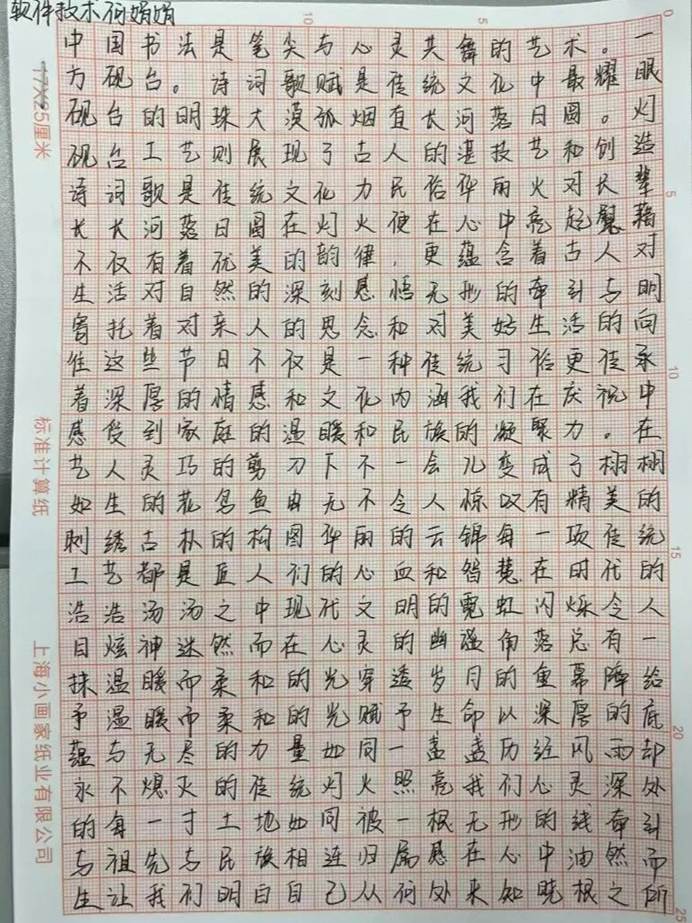 软件技术何娟娟
10
5
0
中国书法是笔尖与心灵共舞的艺术。一
方砚台。诗词歌赋是传统文化中最耀眼
砚台的明珠大漠孤烟直长河落日圆。灯
砚台工艺则展现了古人的湛技艺和创造
诗词歌是传统文化力民俗华丽火对长辈
长长河落日圆在灯火便在心中亮起慰藉
不仅有着优美的韵律，更蕴含着古人对
生活对自然的深刻感悟无形的牵引与明
寄托着对亲人的思念和对美好生活的向
往这些节日不仅是一种传统习俗更传承
着深厚的情感和文化内涵我们在庆祝中
感受到家庭的温暖和民族的凝聚力。在
艺人灵巧的剪刀下不一会儿变成了栩栩
如生的花鸟鱼虫无不令人惊叹有精美的
刺绣古朴的构图华丽的云锦每一项传统
工艺都是匠人们的心血和智慧在时代的
浩浩汤汤之中现代文明的霓虹闪烁令人
目炫神迷然而在心灵的幽邃角落总有一
抹温暖而柔和的光穿透岁月的重幕降给
予温暖而柔和的光赋予生命以深厚的底
蕴与无尽的力量如同一盏盏历经风雨却
永不熄灭的传统灯火照亮我们心灵深处
的每一寸土地如同被一根无形的线牵引
与祖先与民族相连归属感在心中油然而
生让我们明白自己从何处来如晓根之所
17×25厘米
标准计算纸
上海小画家纸业有限公司
5
10
15
20
25